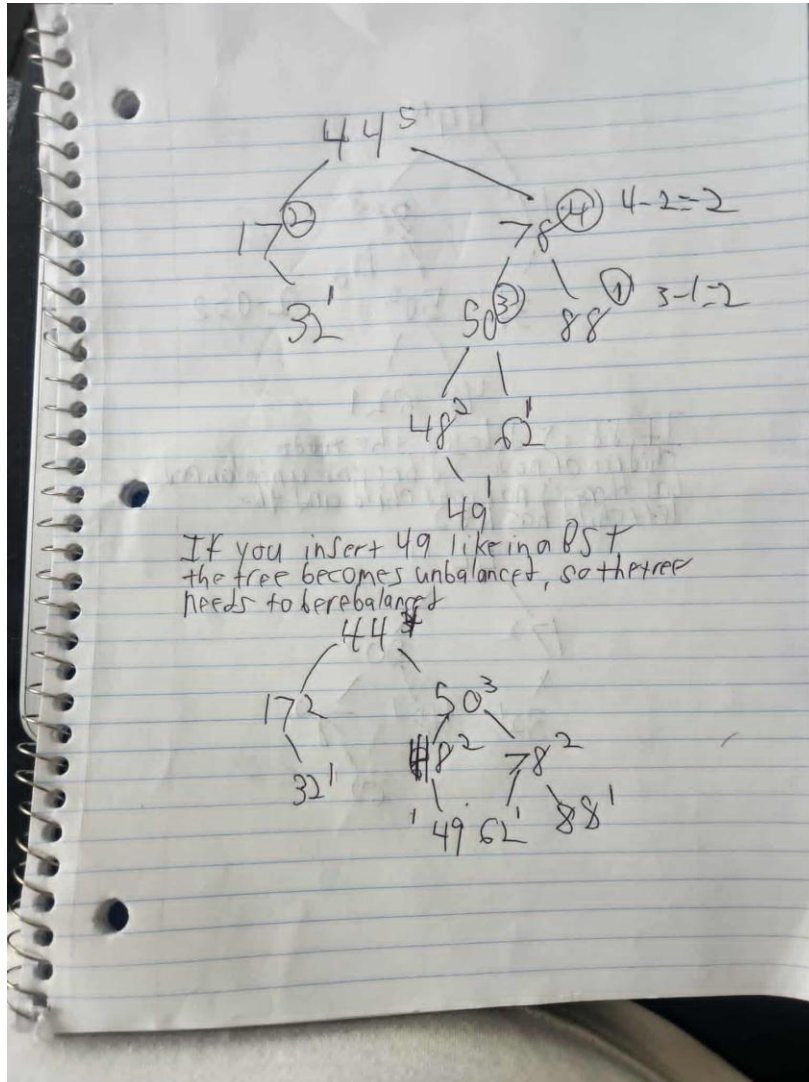 44 5
17 2 78 4 4-2=2
32 1 50 3 88 1 3-1=2
48 2 62 1
49 1
If you insert 49 like in a BST
the tree becomes unbalanced, so the tree
needs to be rebalanced
44
17 2 50 3
48 2 78 2
32 1
1 49 62 1 88 1